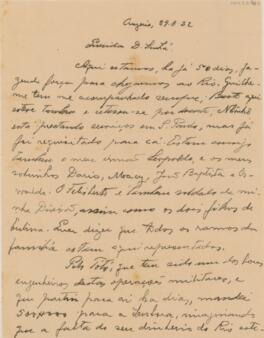 29.8.32
Querida D.
Aqui estamos, ha já 50 dias, fa-
zendo força para chegarmos ao Rio. Guilher-
me tem me acompanhado sempre; Bento aqui
esteve tambem e
está prestando serviços em S. Paulo, mas já
foi requisitado para cá. Estão comigo
tambem o meu irmão Leopoldo, e os meus
sobrinhos Dario, Moacy, José Baptista e Os-
waldo. O Felisberto é tambem soldado de mi-
nha Divisão, assim como os dois filhos de
Quer dizer que todos os ramos da
familia estam aqui representados.
Pelo Totó, que tem sido um dos bons
engenheiros destas operações militares, e
que partiu para ahi ha dias, mandei
500$000 para a Senhora, imaginando
que a falta do seu dinheiro do Rio este-